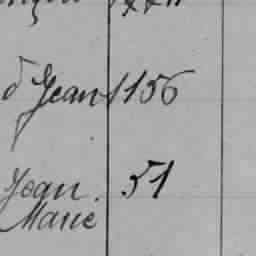 Jean 1156
Jean 51
Marie